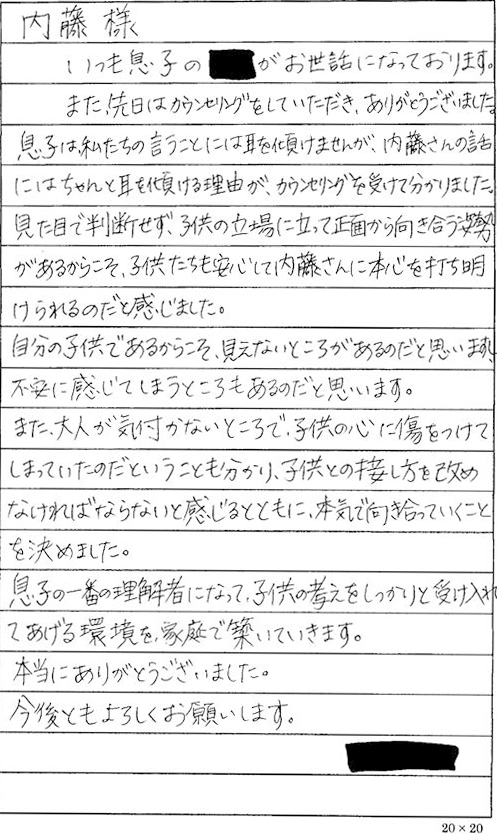 内藤 様
いつも息子の がお世話になっております。
また、先日はカウンセリングをしていただき、ありがとうございました。
息子は私たちの言うことには耳を傾けませんが、内藤さんの話
にはちゃんと耳を傾ける理由が、カウンセリングを受けて分かりました。
見た目で判断せず、子供の立場に立って正面から向き合う姿勢
があるからこそ、子供たちも安心して内藤さんに本心を打ち明
けられるのだと感じました。
自分の子供であるからこそ、見えないところがあるのだと思いますし、
不安に感じてしまうところもあるのだと思います。
また、大人が気付かないところで、子供の心に傷をつけて
しまっていたのだということも分かり、子供との接し方を改め
なければならないと感じるとともに、本気で向き合っていくこと
を決めました。
息子の一番の理解者になって、子供の考えをしっかりと受け入れ
てあげる環境を、家庭で築いていきます。
本当にありがとうございました。
今後ともよろしくお願いします。
20×20